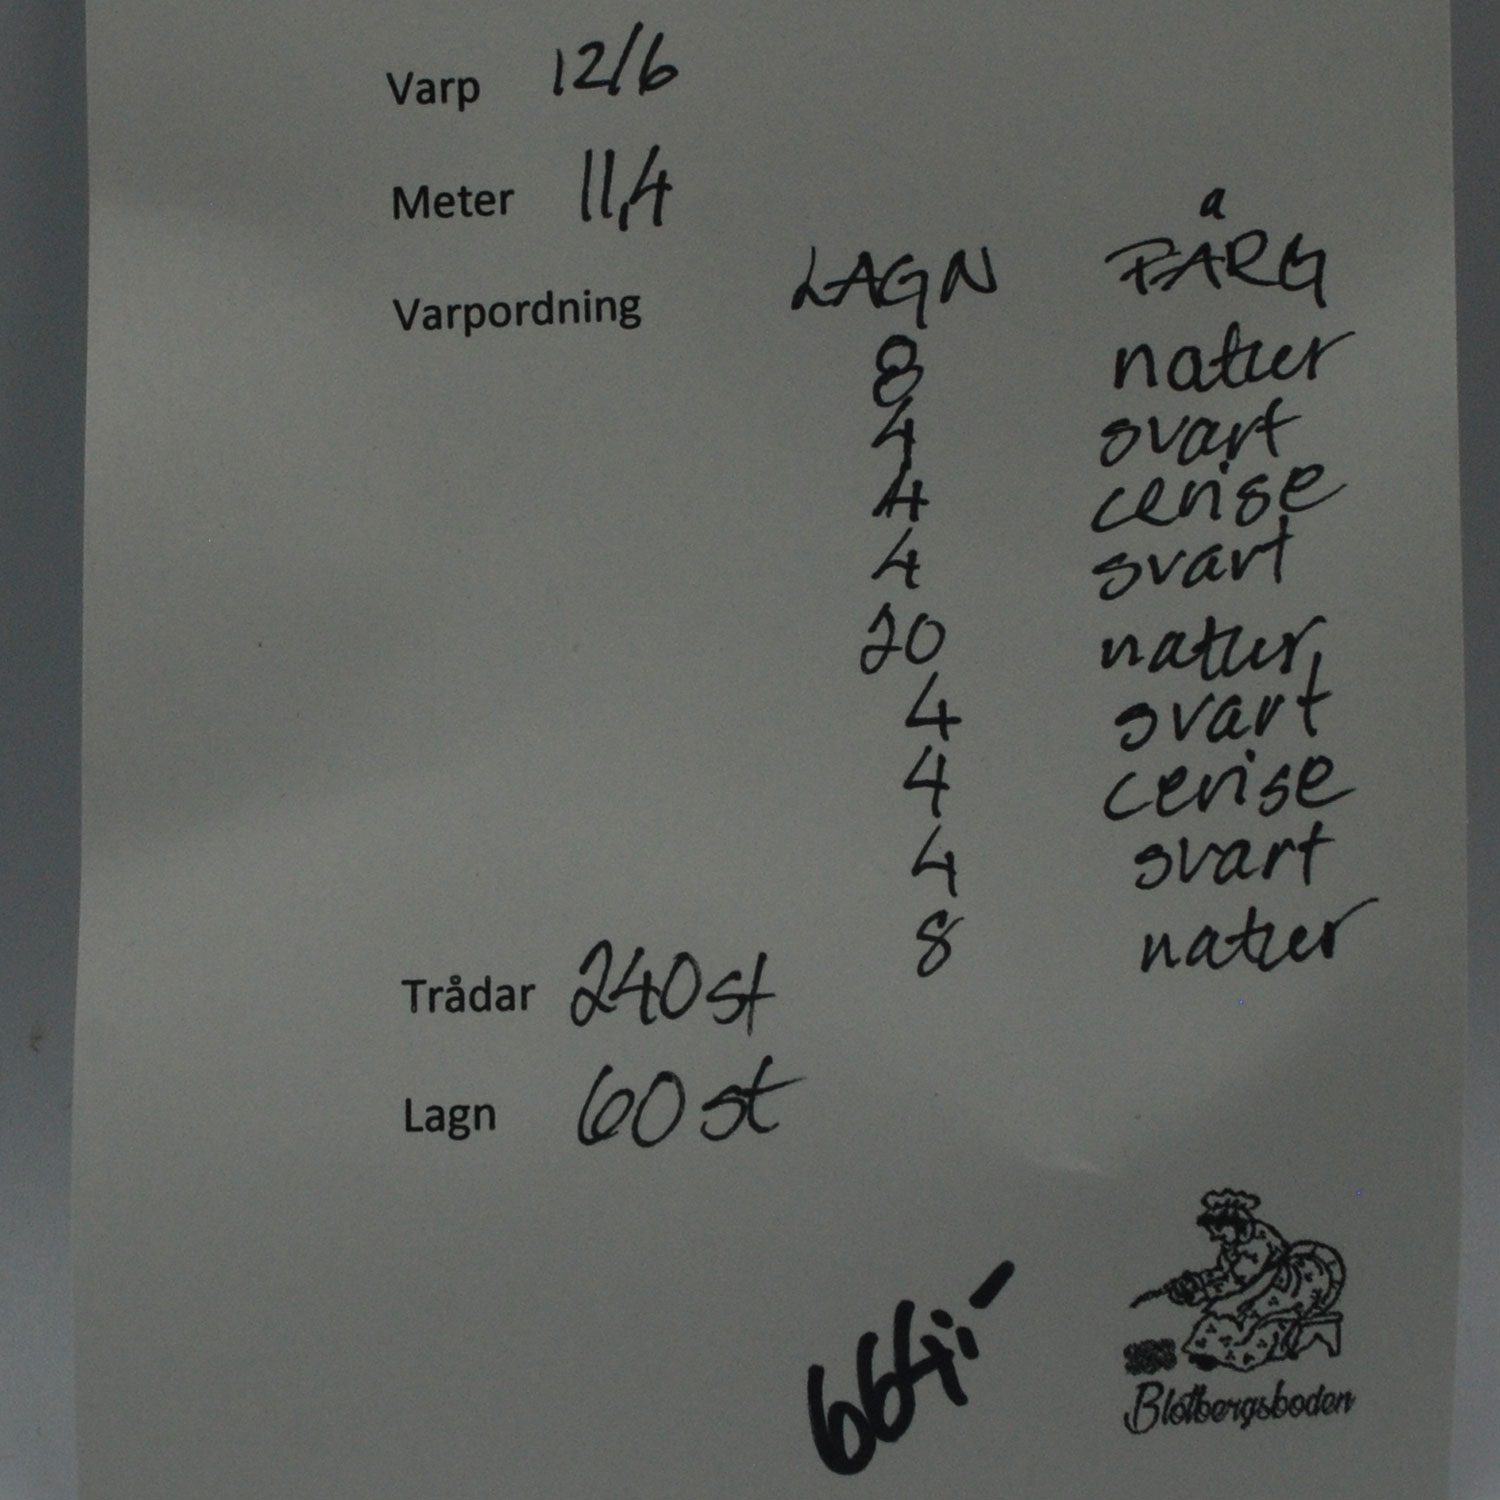 Varp 12/6
Meter 11,4
Varpordning LAGN FÄRG
8 natur
4 svart
4 cerise
4 svart
20 natur
4 svart
4 cerise
4 svart
8 natur
Trådar 240 st
Lagn 60 st
664:-
Blötbergsboden